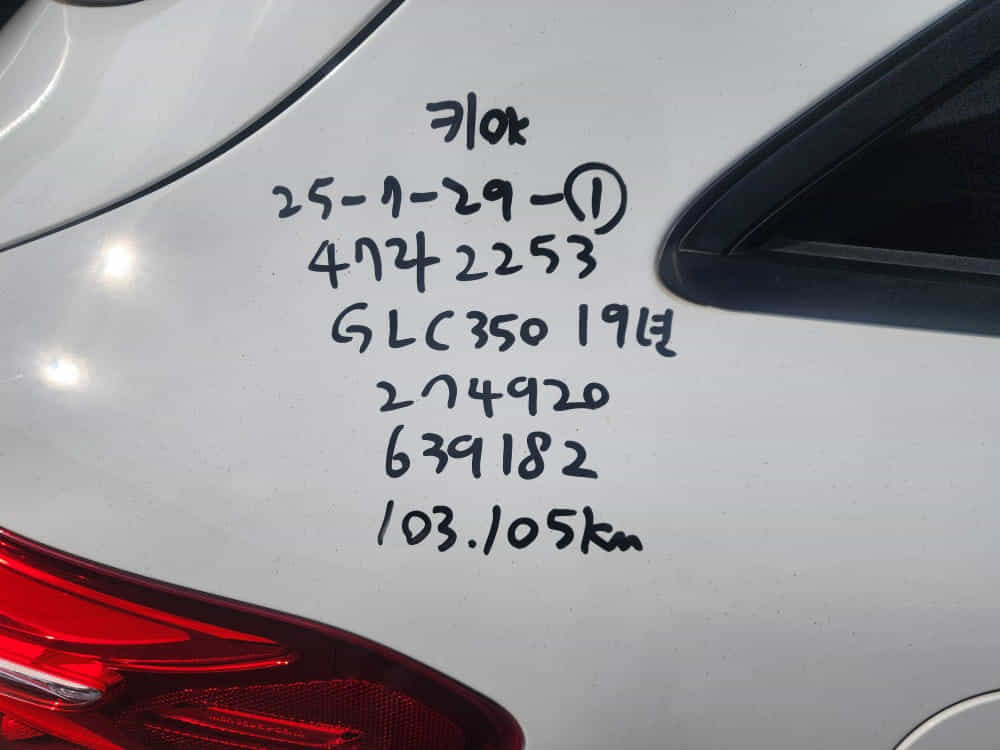 키ok
25-7-29-①
47라 2253
GLC350 19년
274920
639182
103.105km